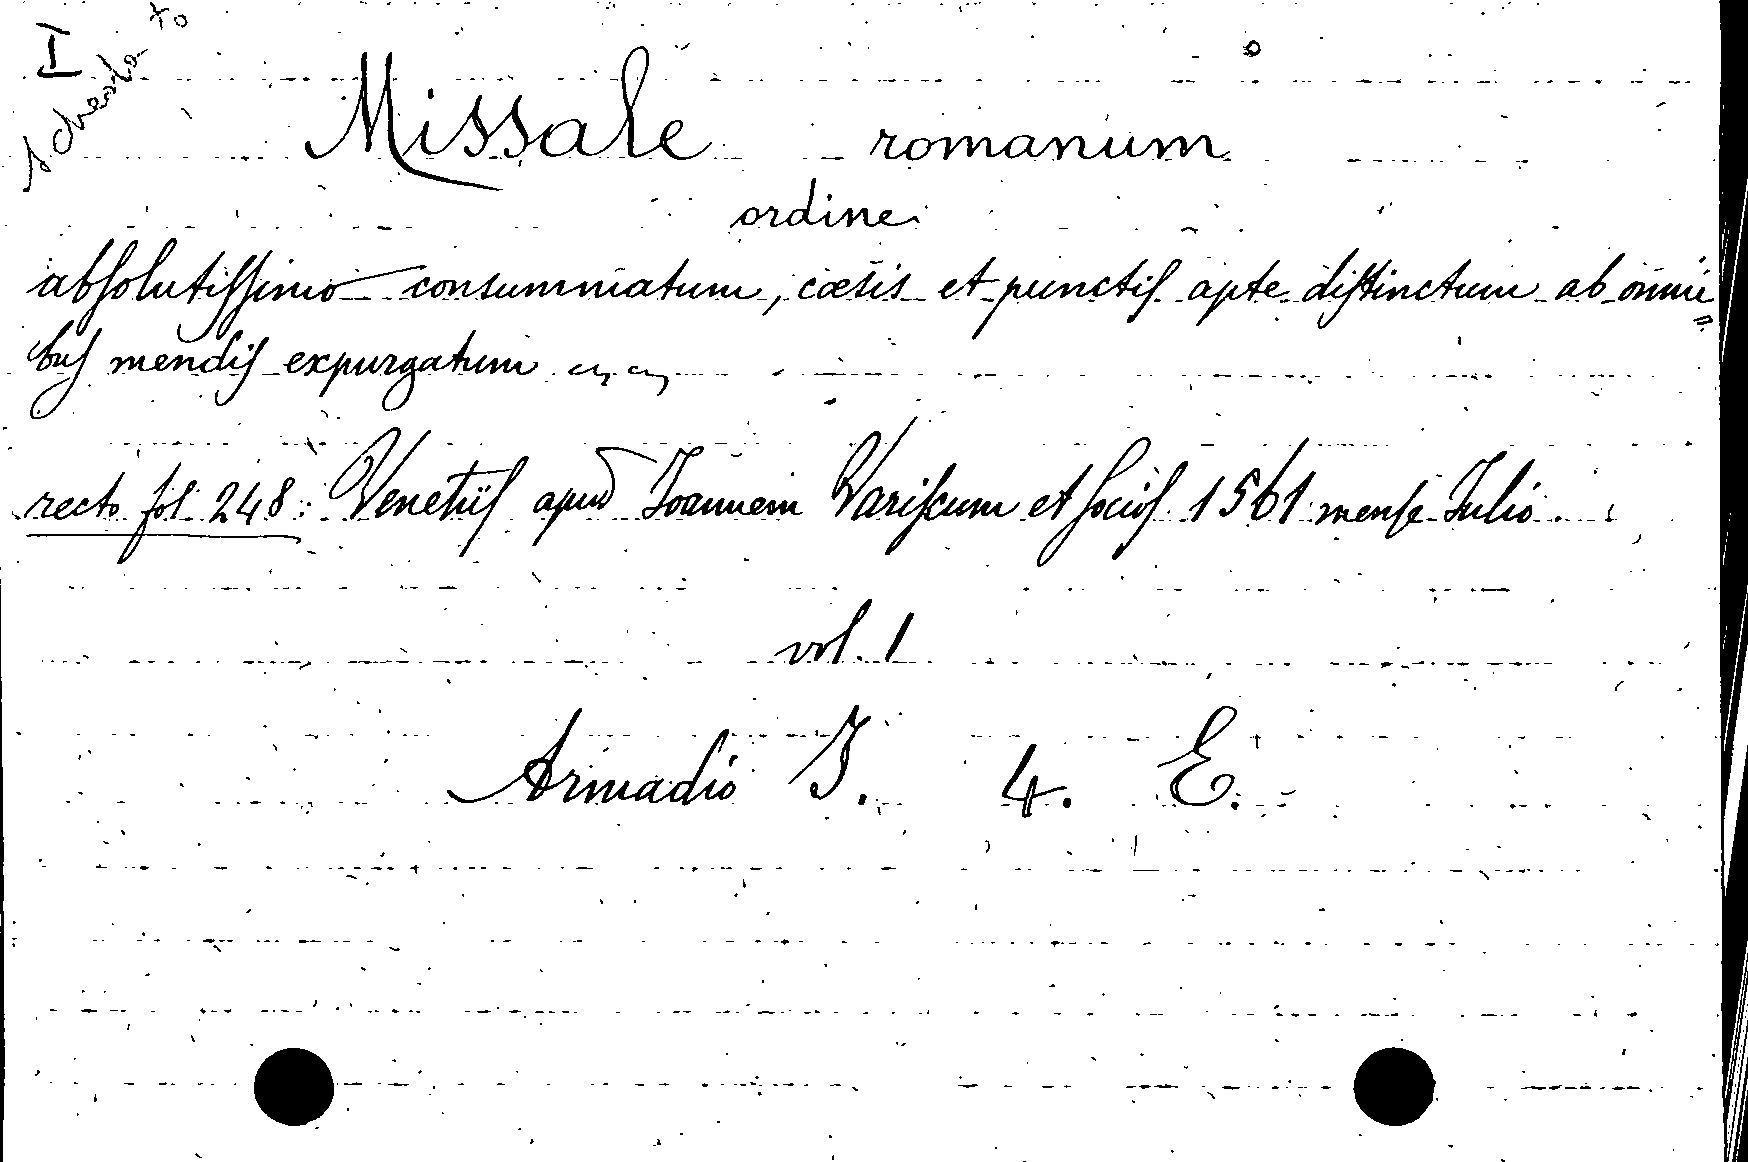 I
Missale romanum
ordine
absolutissimo consummatum, cœsis et punctis apte distinctum ab omni
bus mendis expurgatum
recto fol 248: Venetiis apud Ioannem Variscum et socios 1561 mense Julio.
vol. 1
Armadio I. 4. E.